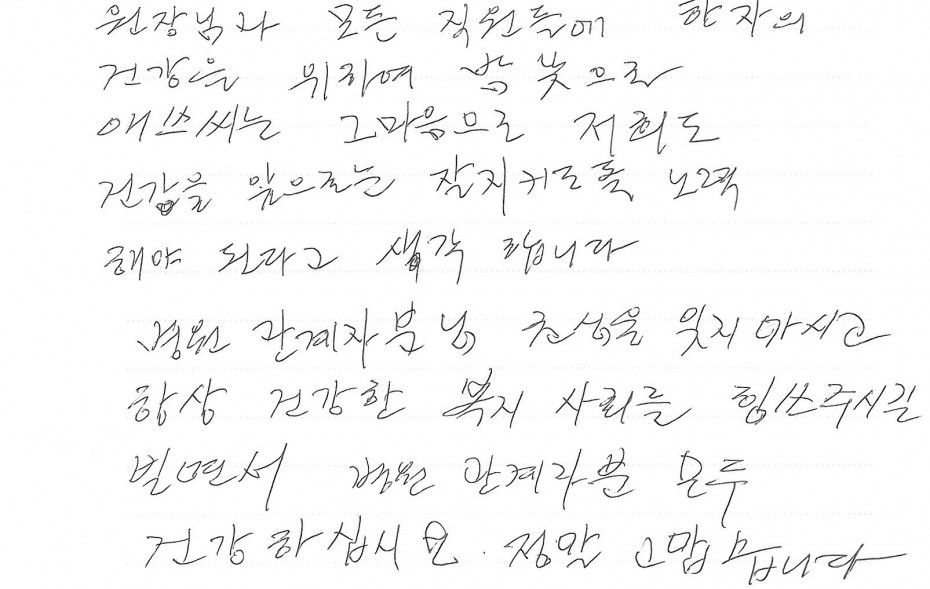 원장님과 모든 직원들에 환자의
건강은 위하여 밤 낮으로
애쓰씨는 그마음으로 저희도
건강을 앞으로는 잘지키도록 노력
해야 된다고 생각 합니다
병원 관계자분님 초심을 잊지마시고
항상 건강한 복지 사회를 힘쓰주시길
빌면서 병원 관계자분 모두
건강하십시요. 정말 고맙습니다